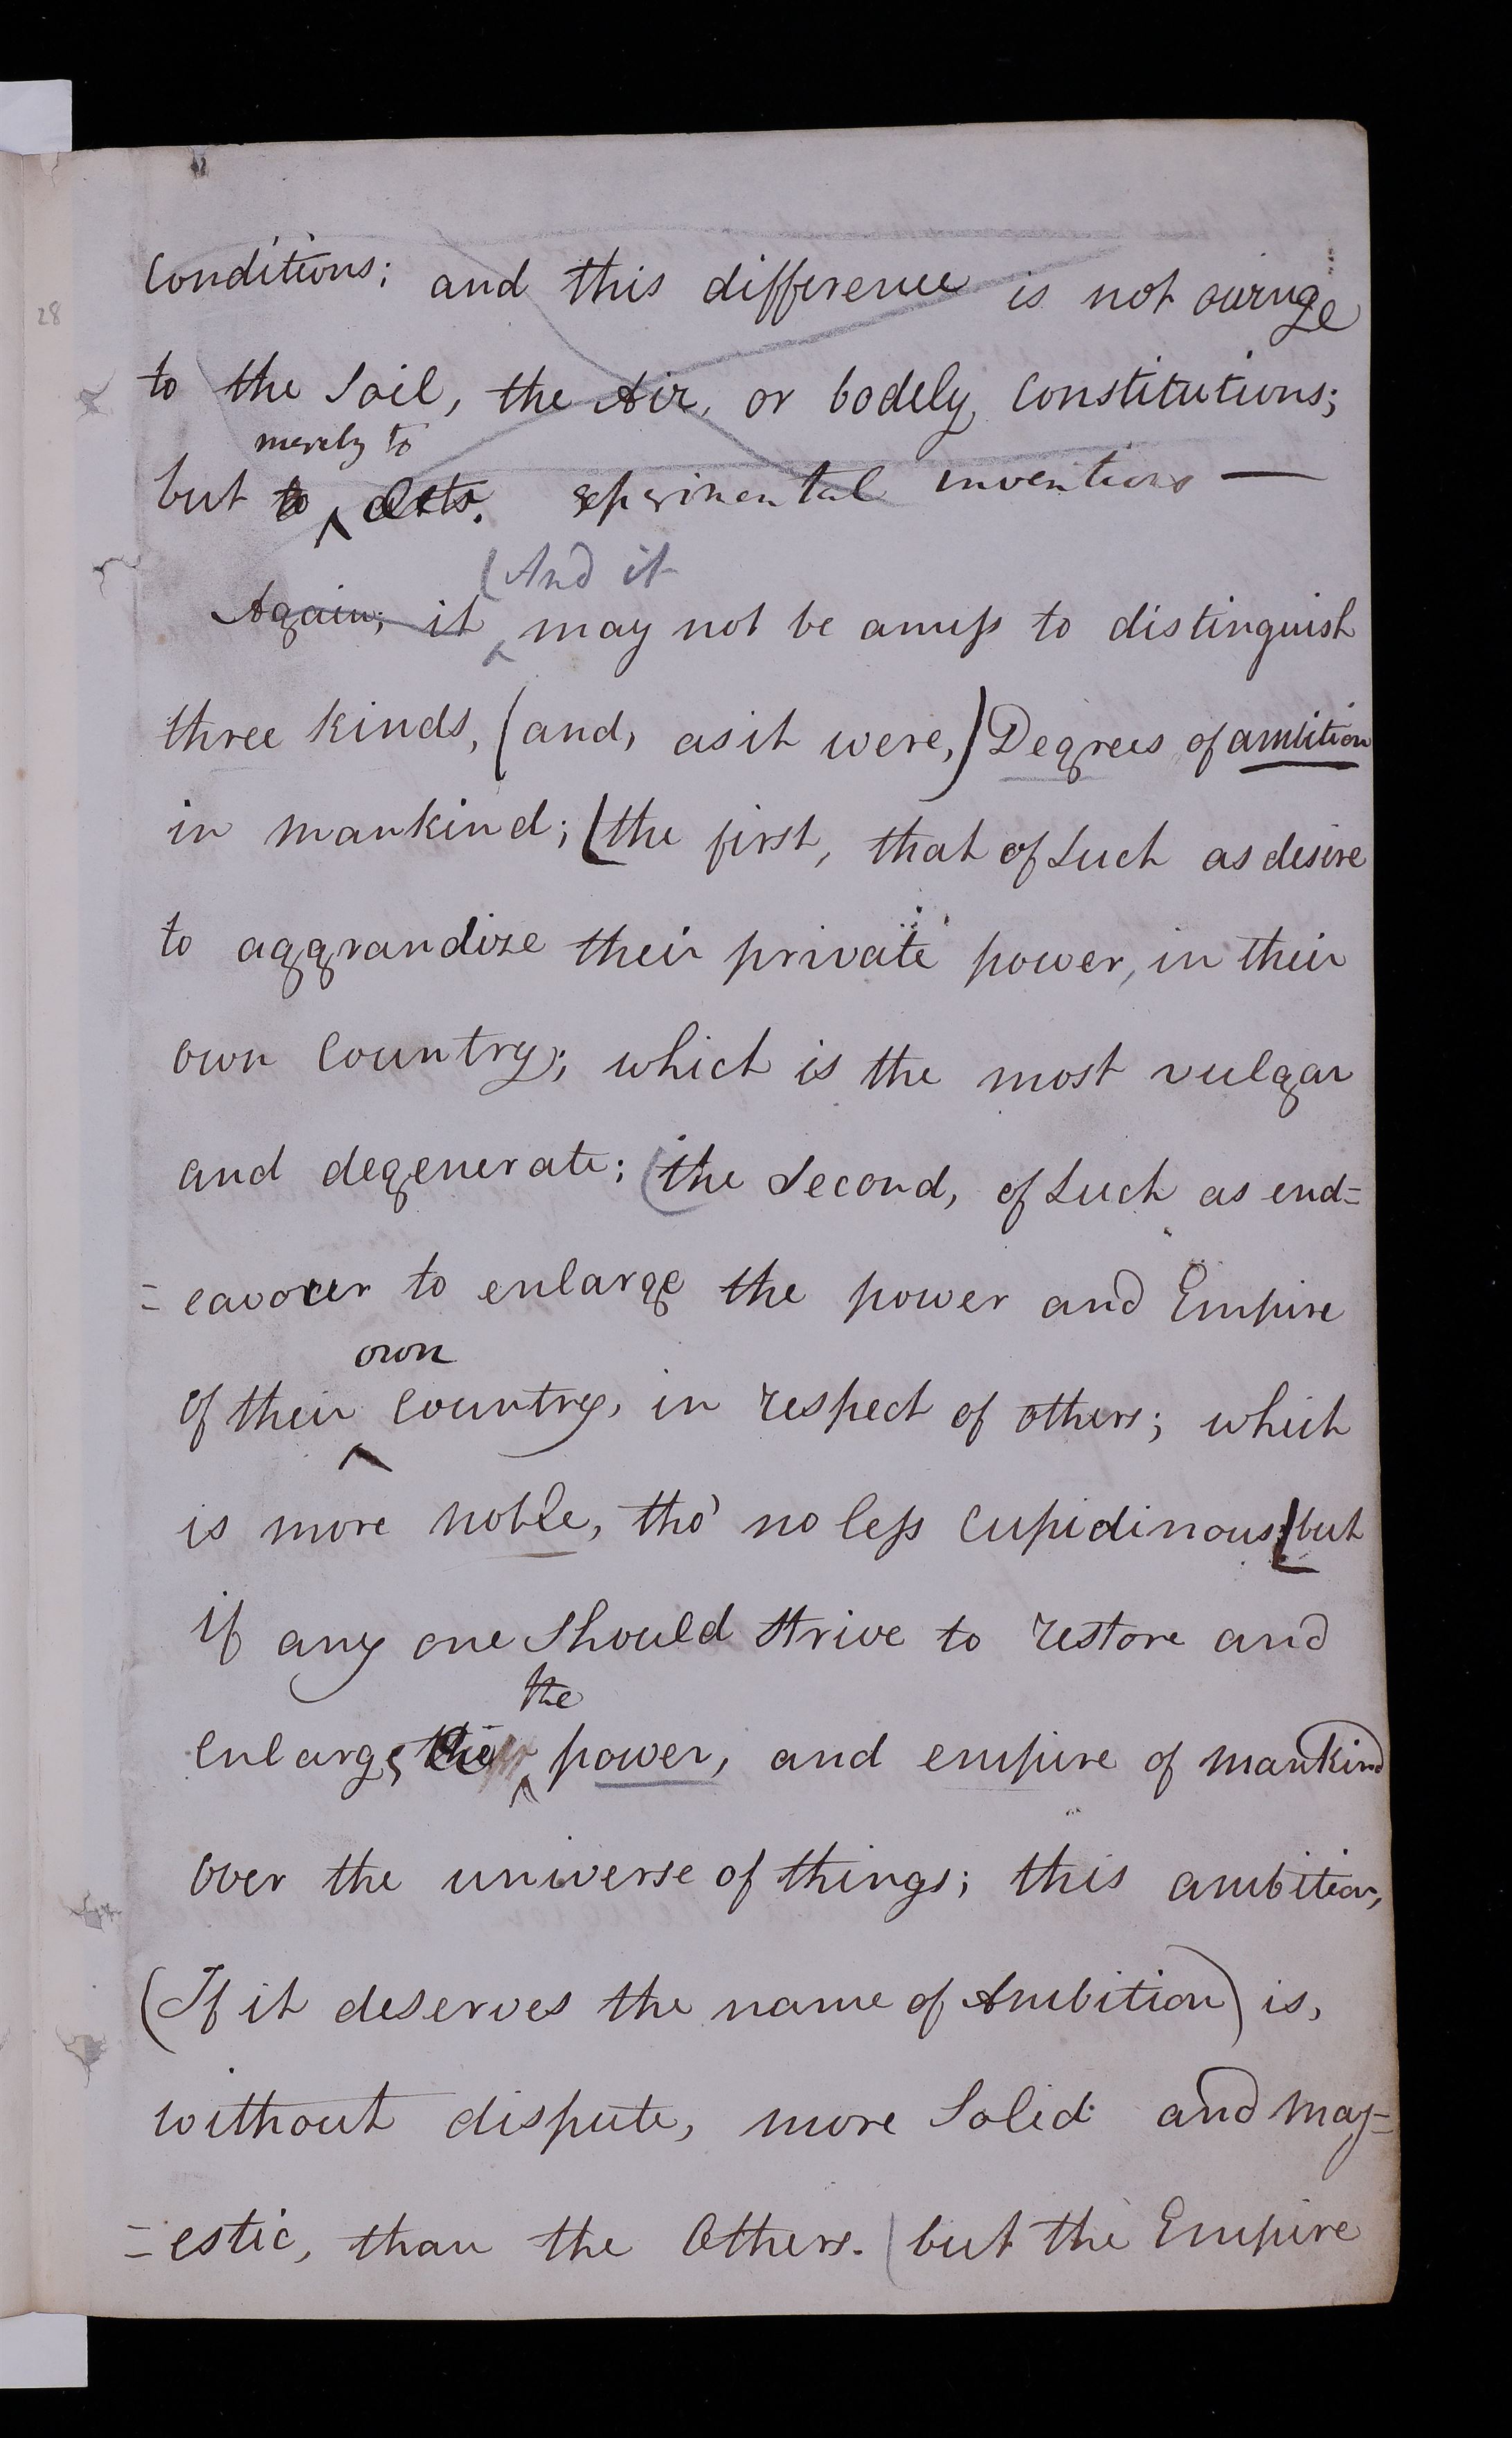 28
Conditions; and this difference is not owing
to the Soil, the Air, or bodely Constitutions;
merely to
but to Arts. experimental inventions —
(And it
Again; it may not be amiss to distinguish
three kinds, (and, as it were,) Degrees of ambition
in mankind; (the first, that of Such as desire
to aggrandize their private power, in their
own Country; which is the most vulgar
and degenerate; (the Second, of Such as end=
=eavour to enlarge the power and Empire
own
of their Country, in respect of others; which
is more noble, tho' no less Cupidinous; (but
if any one Should strive to restore and
the
enlarge power, and empire of mankind
over the universe of things; this ambition,
(If it deserves the name of Ambition) is,
without dispute, more Solid and maj=
=estic, than the Others. (but the Empire